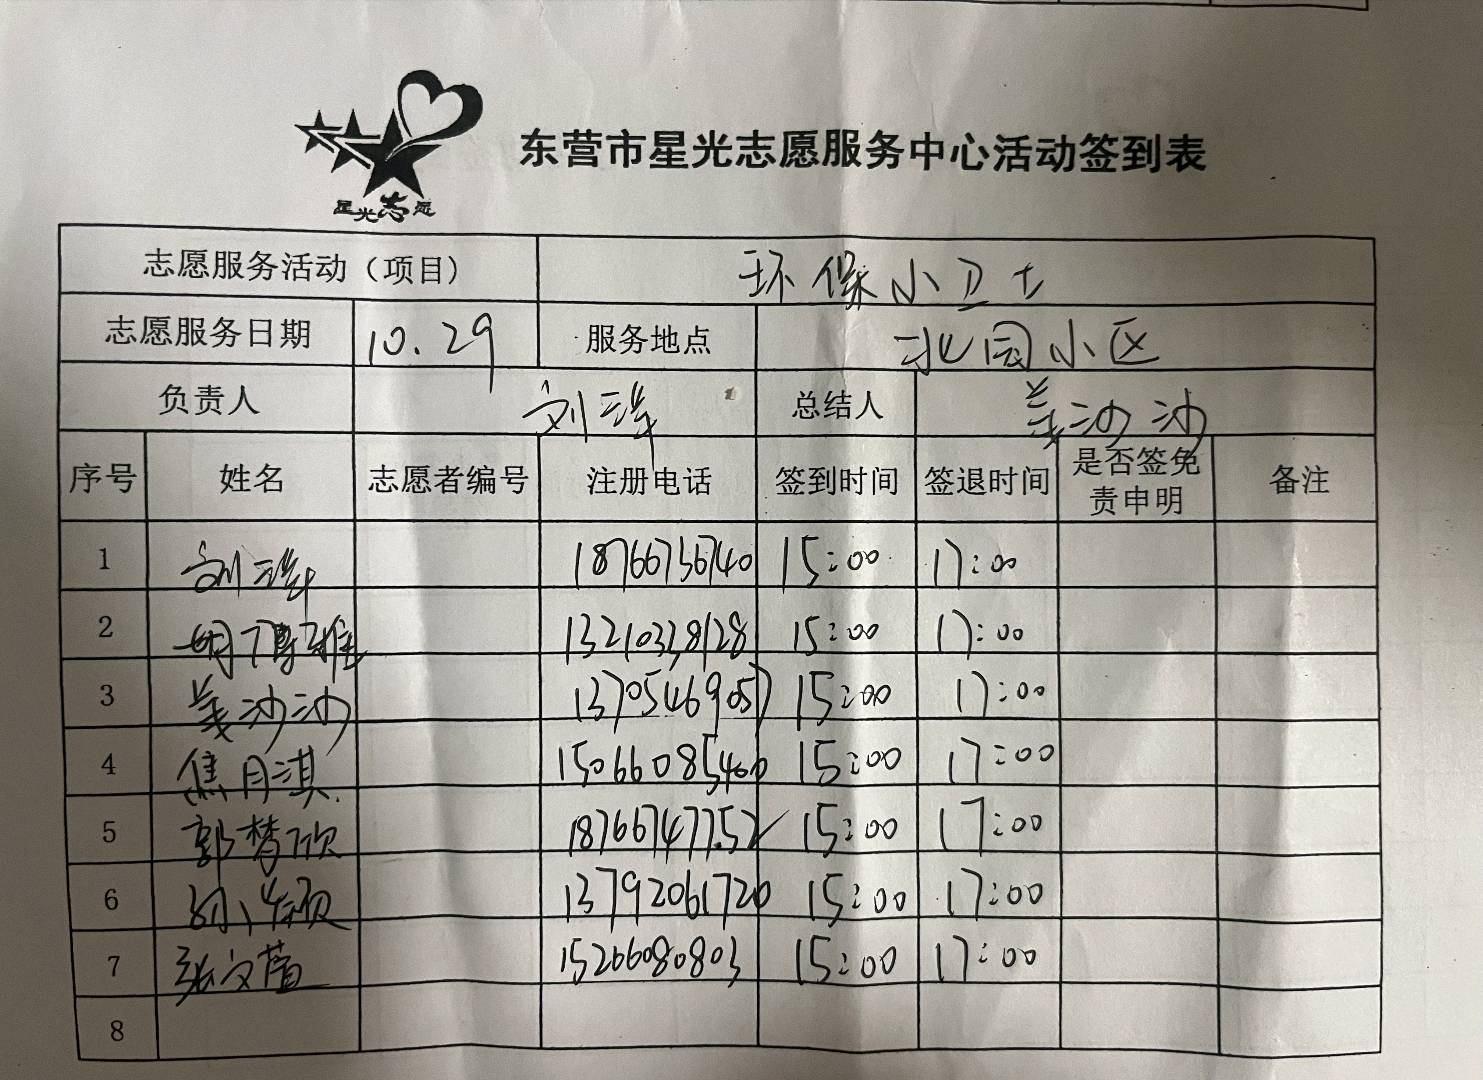 星光志愿
东营市星光志愿服务中心活动签到表
志愿服务活动（项目） 环保小卫士
志愿服务日期 10.29 服务地点 北园小区
负责人 刘洋 总结人 姜沙沙
序号 姓名 志愿者编号 注册电话 签到时间 签退时间 是否签免责申明 备注
1 刘洋 18766736740 15:00 17:00
2 胡博雅 13210338128 15:00 17:00
3 姜沙沙 13705469057 15:00 17:00
4 焦月淇 15066085400 15:00 17:00
5 郭梦欣 18766747752 15:00 17:00
6 13792061720 15:00 17:00
7 张文 15266080803 15:00 17:00
8